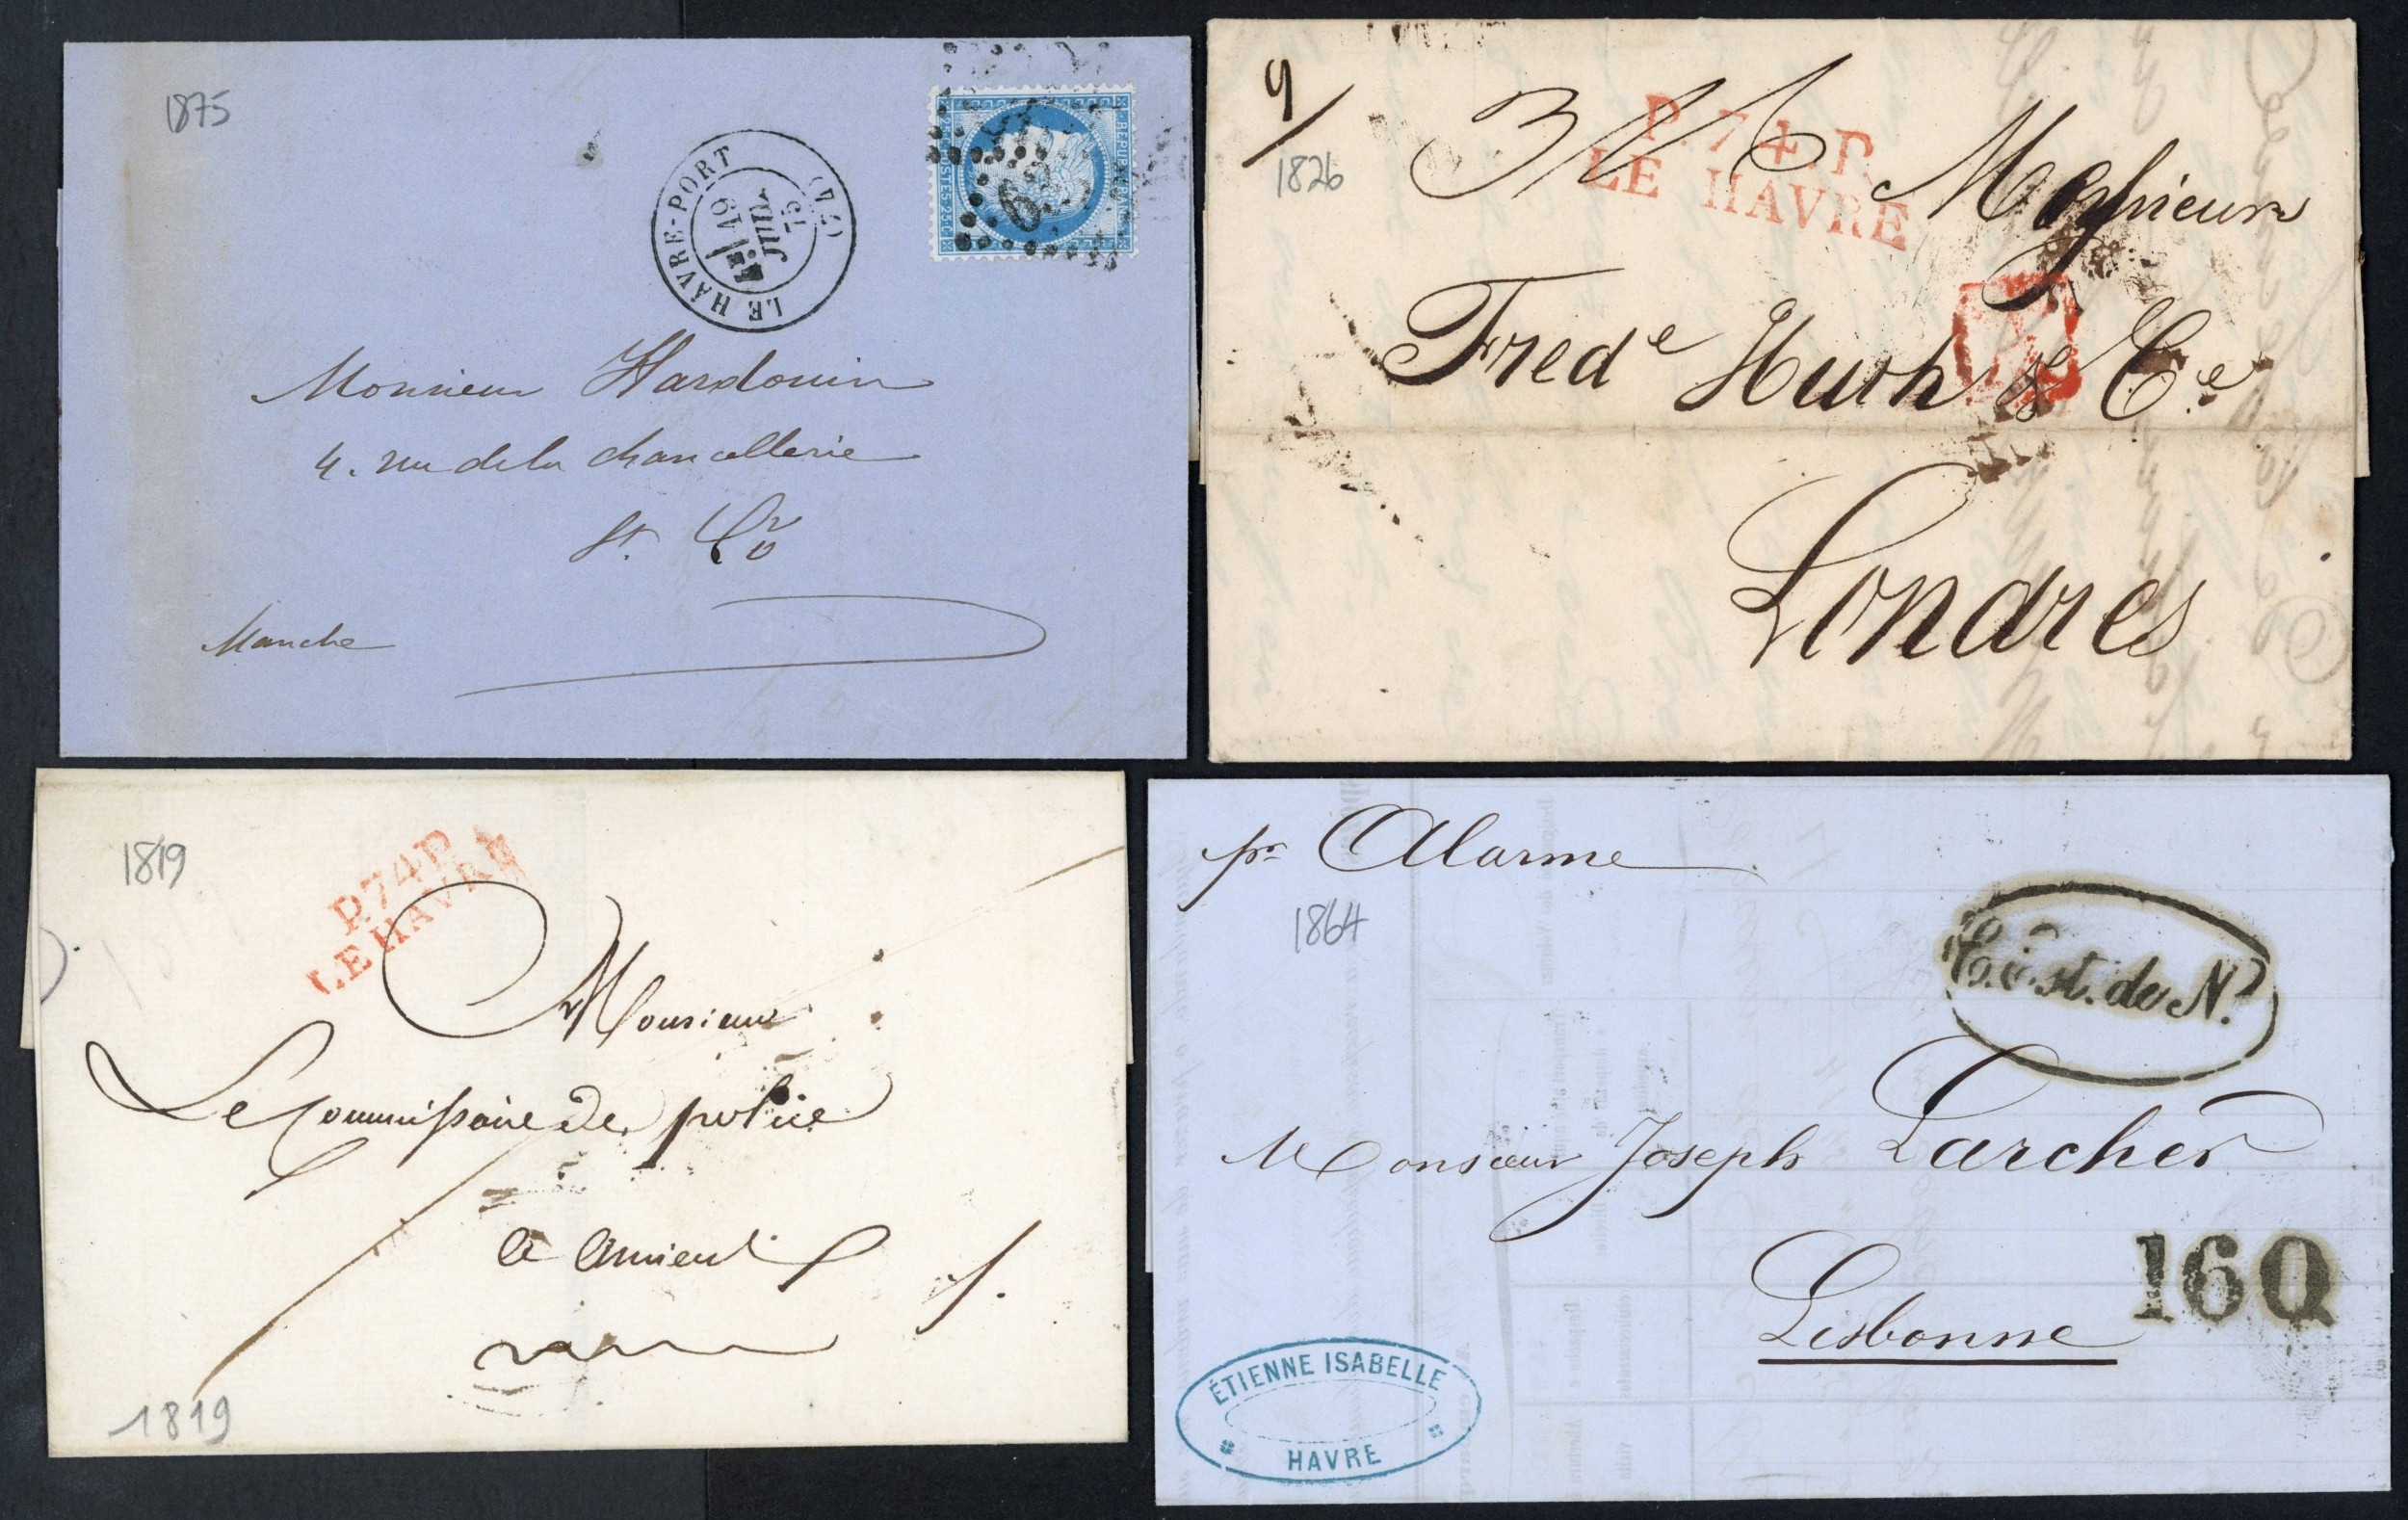 1875
LE HAVRE-PORT (74)
4E
19
JUIL
75
REPUB FRANC
POSTES 25 C
Monsieur Hardouin
4. rue de la chancellerie
St. Lô
Manche
1826
P.74.P.
LE HAVRE
Messieurs
Fredc Huth & Ce
Londres
1819
P.74.P.
LE HAVRE
Monsieur
Le Commissaire de police
a amiens
1819
pr Alarme
1864
C. Est. de N.
Monsieur Joseph Larcher
Lisbonne
160
ÉTIENNE ISABELLE
HAVRE